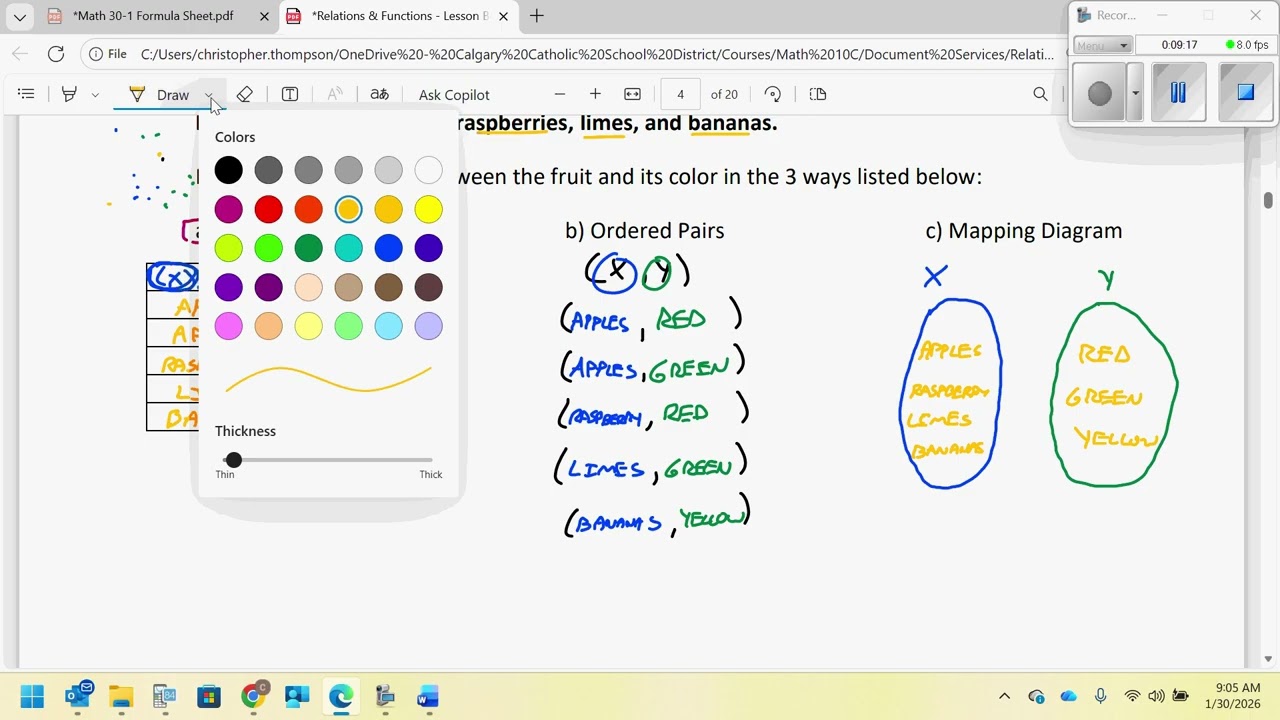 *Math 30-1 Formula Sheet.pdf
*Relations & Functions - Lesson B
Recor...
Menu
0:09:17
8.0 fps
File
C:/Users/christopher.thompson/OneDrive%20-%20Calgary%20Catholic%20School%20District/Courses/Math%2010C/Document%20Services/Relati...
Draw
Ask Copilot
4
of 20
raspberries, limes, and bananas.
Colors
ween the fruit and its color in the 3 ways listed below:
b) Ordered Pairs
c) Mapping Diagram
(X, Y)
X
Y
(X)
(APPLES, RED)
(APPLES, GREEN)
(RASPBERRY, RED)
(LIMES, GREEN)
(BANANAS, YELLOW)
APPLES
RASPBERRY
LIMES
BANANAS
RED
GREEN
YELLOW
Thickness
Thin
Thick
9:05 AM
1/30/2026